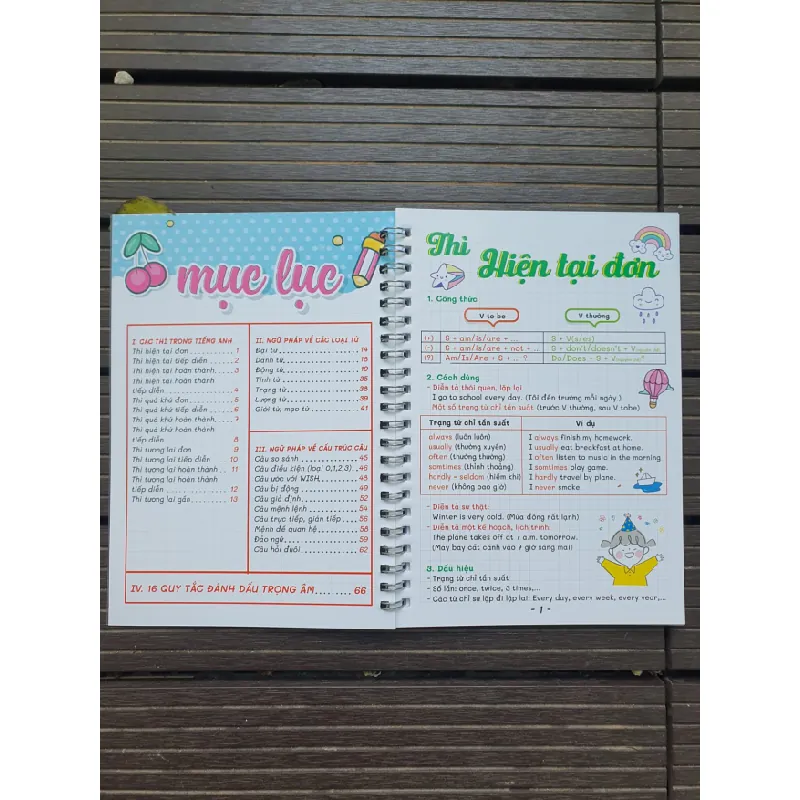 mục lục
I. CÁC THÌ TRONG TIẾNG ANH
Thì hiện tại đơn ........... 1
Thì hiện tại tiếp diễn ...... 2
Thì hiện tại hoàn thành ... 3
Thì hiện tại hoàn thành
tiếp diễn ............ 4
Thì quá khứ đơn ........ 5
Thì quá khứ tiếp diễn ..... 6
Thì quá khứ hoàn thành .. 7
Thì quá khứ hoàn thành
tiếp diễn ............ 8
Thì tương lai đơn ........ 9
Thì tương lai tiếp diễn .... 10
Thì tương lai hoàn thành .. 11
Thì tương lai hoàn thành
tiếp diễn ............ 12
Thì tương lai gần ........ 13
II. NGỮ PHÁP VỀ CÁC LOẠI TỪ
Đại từ ............ 14
Danh từ
Động từ
Tính từ
Trạng từ
Lượng từ ............ 39
Giới từ, mạo từ ........ 41
III. NGỮ PHÁP VỀ CẤU TRÚC CÂU
Câu so sánh ............ 45
Câu điều kiện (loại 0,1,2,3) .. 46
Câu ước với WISH ........ 48
Câu bị động ............ 49
Câu giả định ............ 52
Câu mệnh lệnh ............ 54
Câu trực tiếp, gián tiếp .... 56
Mệnh đề quan hệ ........ 58
Đảo ngữ ............ 59
Câu hỏi đuôi ............ 62
IV. 16 QUY TẮC ĐÁNH DẤU TRỌNG ÂM ........ 66
Thì Hiện tại đơn
1. Công thức
V to be V thường
(+) S + am/is/are + ... S + V(s/es)
(-) S + am/is/are + not + ... S + don't/doesn't + V(nguyên thể)
(?) Am/Is/Are + S + ... ? Do/Does + S + V(nguyên thể)
2. Cách dùng
- Diễn tả thói quen, lặp lại
I go to school every day. (Tôi đến trường mỗi ngày)
Một số trạng từ chỉ tần suất (trước V thường, sau V tobe)
Trạng từ chỉ tần suất Ví dụ
always (luôn luôn) I always finish my homework.
usually (thường xuyên) I usually eat breakfast at home.
often (thường thường) I often listen to music in the morning
somtimes (thỉnh thoảng) I somtimes play game.
hardly - seldom (hiếm chỉ) I hardly travel by plane.
never (không bao giờ) I never smoke
- Diễn tả sự thật
Winter is very cold. (Mùa đông rất lạnh)
- Diễn tả một kế hoạch, lịch trình
The plane takes off at 7 a.m. tomorrow.
(Máy bay cất cánh vào 7 giờ sáng mai)
3. Dấu hiệu
- Trạng từ chỉ tần suất
- Số lần: once, twice, 3 times,...
- Các từ chỉ sự lặp đi lặp lại: Every day, every week, every year,...
- 1 -